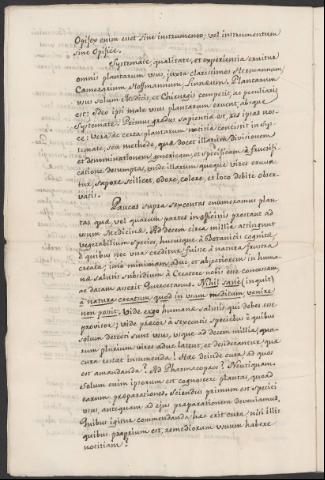 Opifex enim esset sine instrumento, vel instrumentum
sine Opifice.
Systemate, qualitate, et experientia eruitur
omnis plantarum usus, juxta clarissimos Hermannum,
Camerarium Hoffmannum, Linnæum. Plantarum
usus solum Medicis, et Chirurgis competit, ac peculiaris
est; Ideo ipsi male usus plantarum eruunt, absque
Systemate. Primus gradus sapientiæ est, res ipsas nos-
ce; Vera, ac certa plantarum notitia consistit in sys-
temate, seu methodo, quæ docet illarum divisionem
et denominationem genericam, et specificam à fructifi-
catione desumptas, unde illarum quoque vires eruun-
tur, sapore scilicet, odore, colore, et loco debite obser-
vatis.
Paucas supra sexcentas enumeramus plan-
tas, quæ, vel quarum partes in officinis prostant ad
usum Medicina. Ad decem circa millia attingunt
vegetabilium species, hucusque à Botanicis cognitæ,
à quibus nec una creditur fuisse à natura frustra
creata; imo minimam, et abjectiorem in huma-
næ salutis subsidium à Creatore nobis esse concessam,
ac datam asserit Quercetanus. Nihil sane (inquit)
à natura creatum quod in usum medicum venire
non possit. Unde ergo humanæ saluti qui debes esse
provisor; unde placet à sexcentis speciebus è quibus
solum decem sunt usus, usque ad decem millia, qua-
rum plurium vires adhuc latent, et desiderantur quæ
cura restat invenienda? Hac deinde cura, ad quos
est amandanda? Ad Pharmacopæos? Neutiquam.
Solum enim ipsorum est cognoscere plantas, quoad
earum præparationes. Sciendus primum est specificus
usus, antequam ad ejus præparationem deveniamus.
Quibus igitur commendanda hæc erit cura, nisi illis
quibus proprium est, remediorum usuum habere
notitiam?